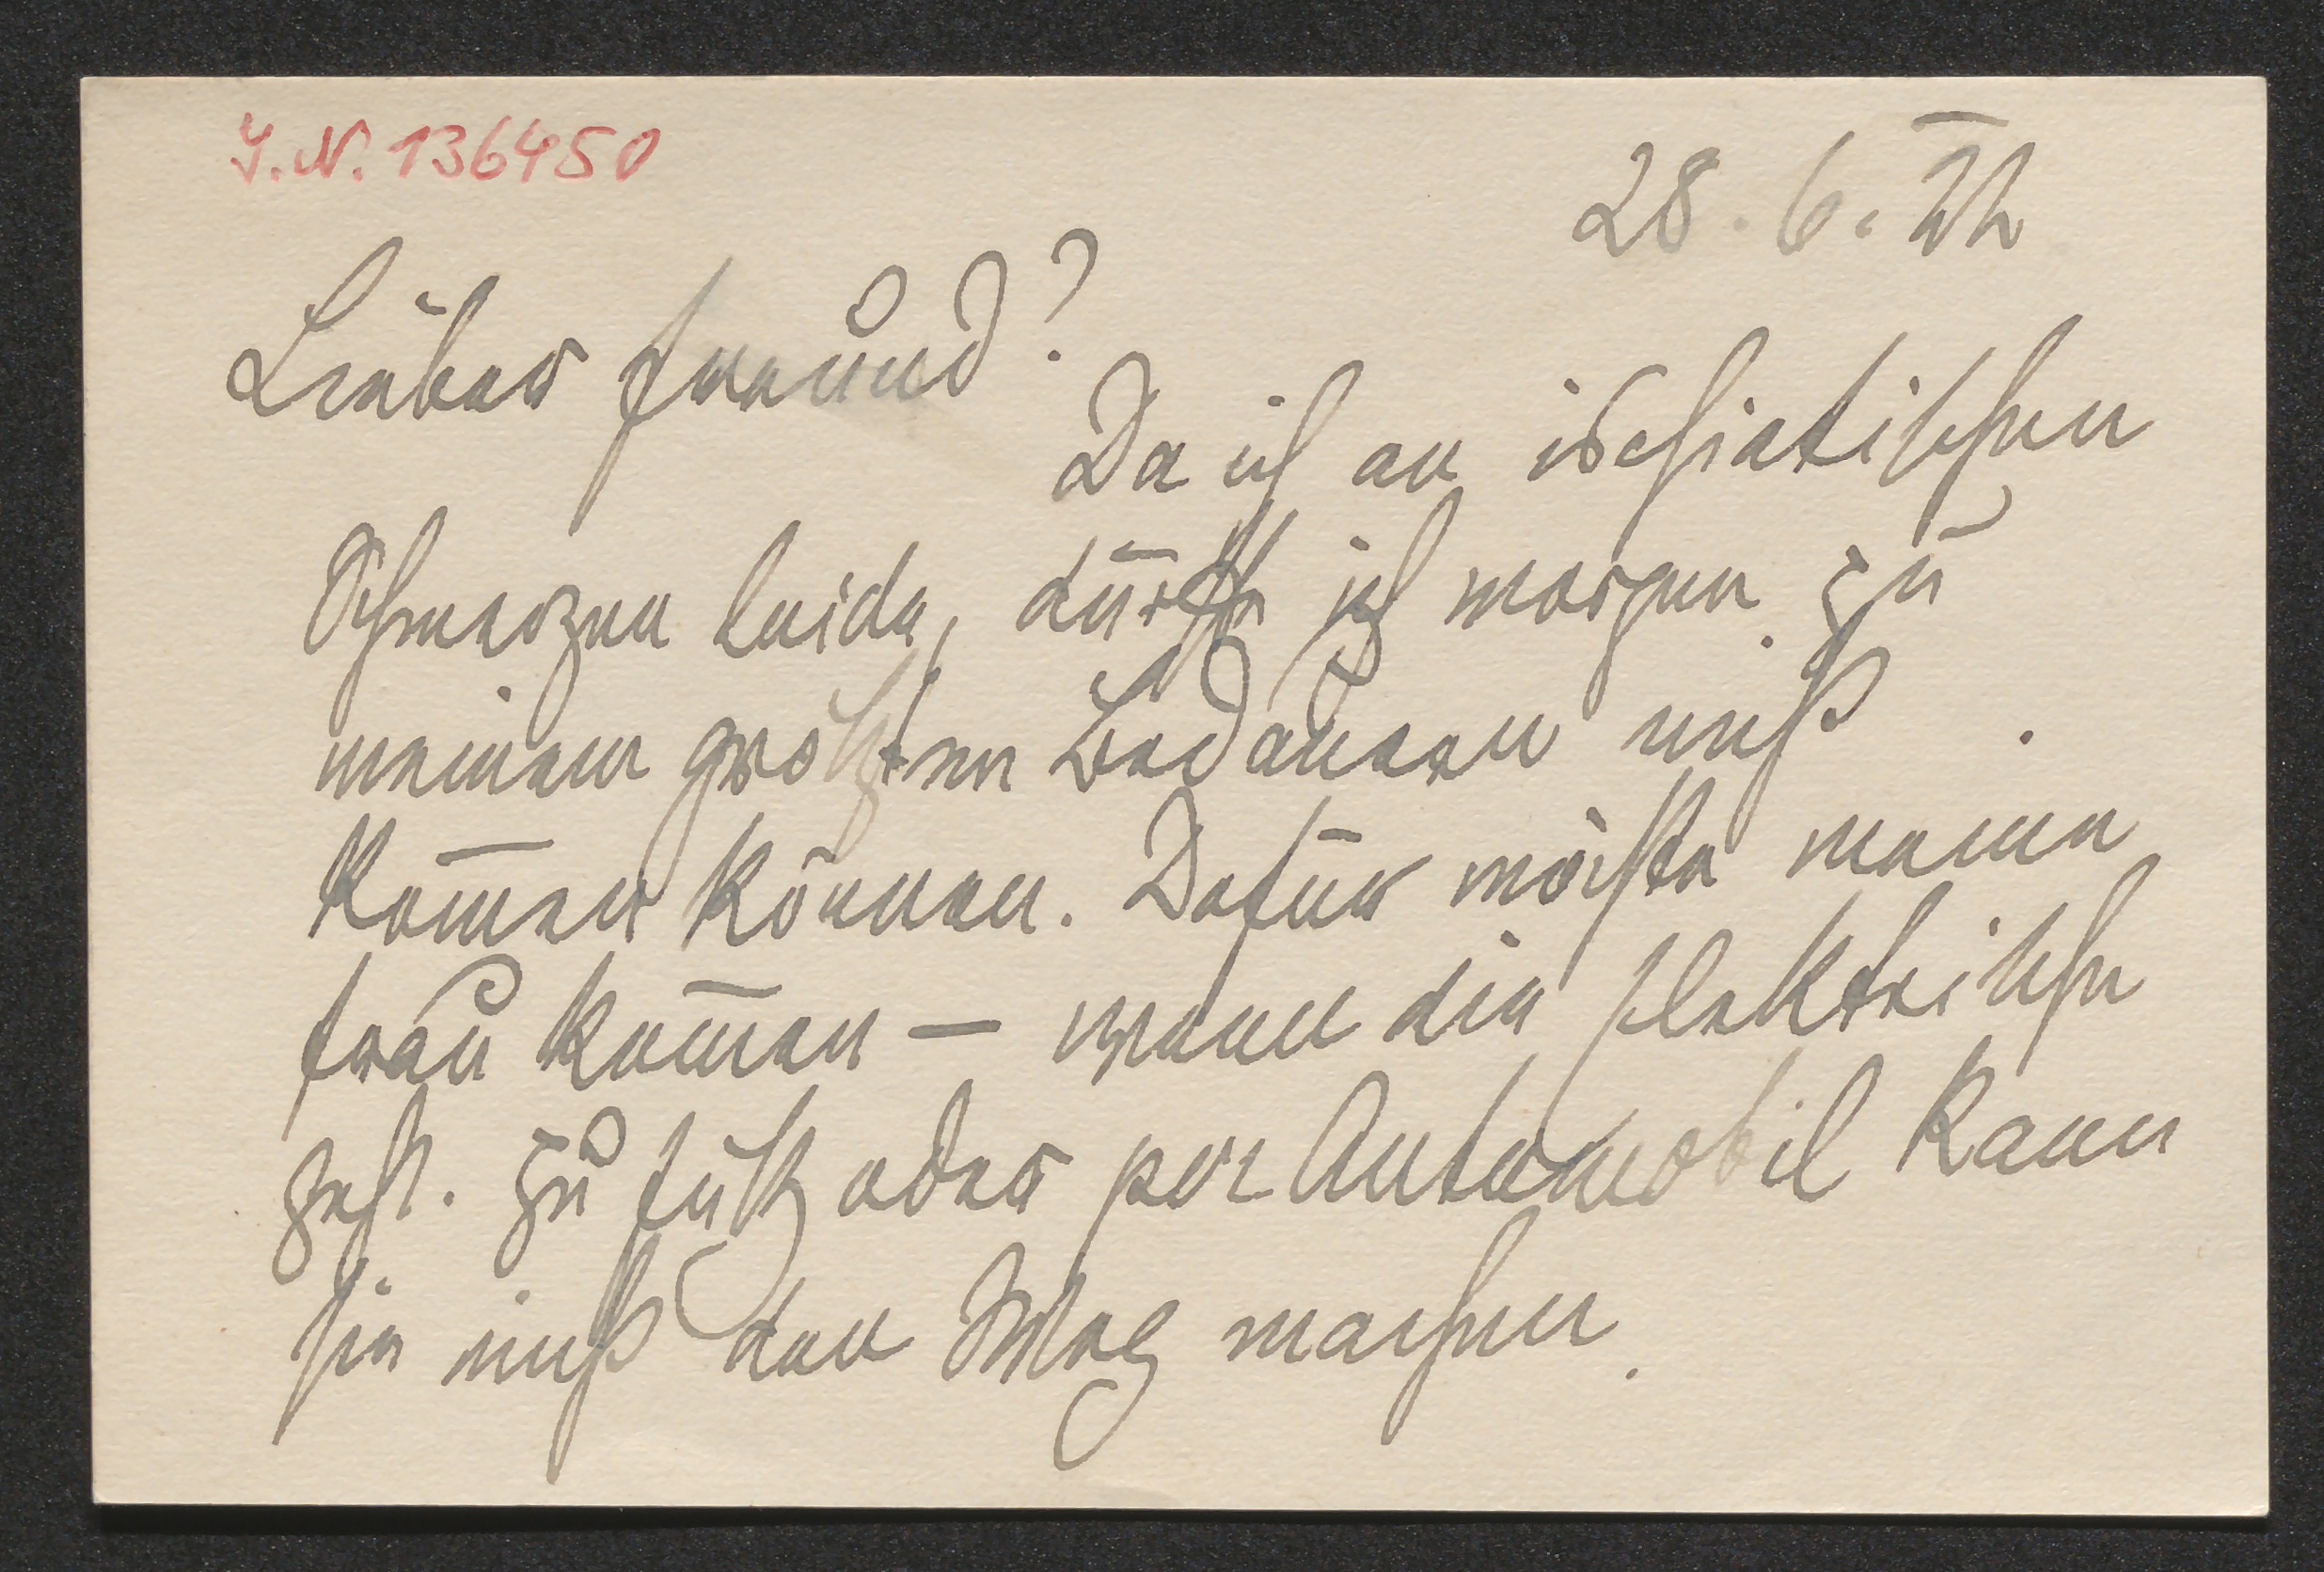 J.N. 136450
28. 6. 22
Lieber Freund!
Da ich an ischiatischen
Schmerzen leide, dürfte ich morgen zu
meinem größten Bedauern nicht
kom̅en können. Dafür möchte meine
Frau kom̅en — wenn die Elektrische
geht. Zu Fuß oder per Automobil kann
sie nicht den Weg machen.